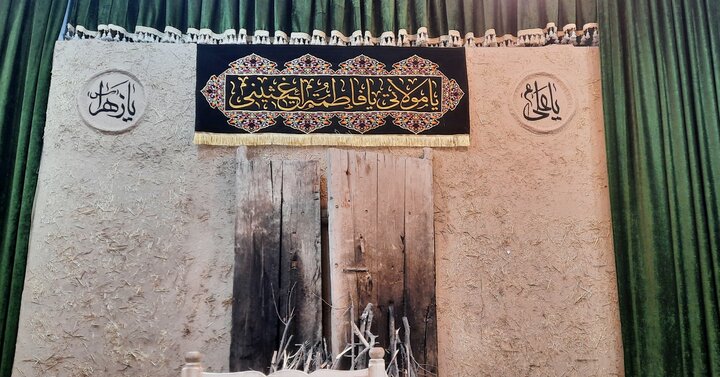 یا مولاتی یا فاطمة اغیثینی
یا علی ع
یا زهرا س